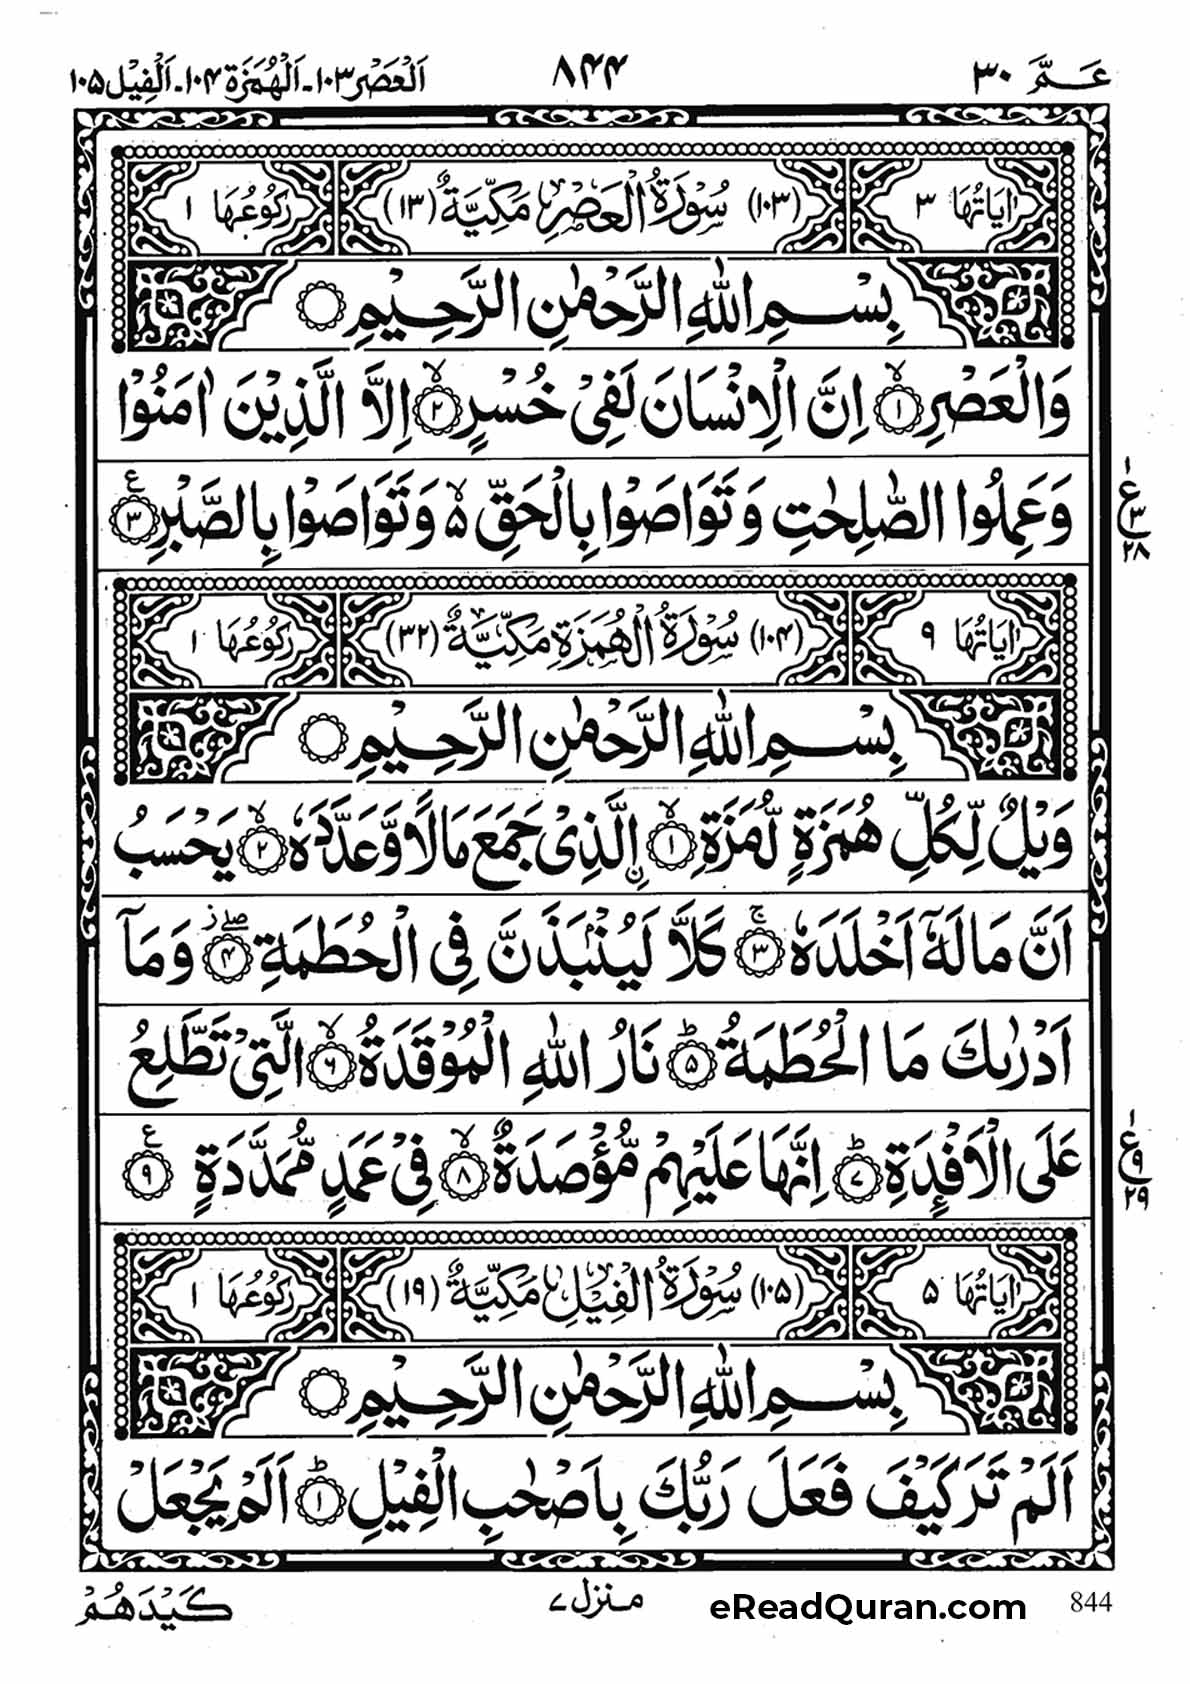 عَمَّ ٣٠ ٨٤٤ اَلْعَصْر ١٠٣-اَلْهُمَزَة ١٠٤-اَلْفِيْل ١٠٥
اٰيَاتُهَا ٣ (١٠٣) سُوْرَةُ الْعَصْرِ مَكِّيَّةٌ (١٣) رُكُوْعُهَا ١
بِسْمِ اللّٰهِ الرَّحْمٰنِ الرَّحِيْمِ
وَالْعَصْرِ ۙ﴿١﴾ اِنَّ الْاِنْسَانَ لَفِيْ خُسْرٍ ۙ﴿٢﴾ اِلَّا الَّذِيْنَ اٰمَنُوْا
وَعَمِلُوا الصّٰلِحٰتِ وَتَوَاصَوْا بِالْحَقِّ ۙ۬ وَتَوَاصَوْا بِالصَّبْرِ ﴿٣﴾ ع
ع ١ ٣ ٢٨
اٰيَاتُهَا ٩ (١٠٤) سُوْرَةُ الْهُمَزَةِ مَكِّيَّةٌ (٣٢) رُكُوْعُهَا ١
بِسْمِ اللّٰهِ الرَّحْمٰنِ الرَّحِيْمِ
وَيْلٌ لِّكُلِّ هُمَزَةٍ لُّمَزَةِ ۙ﴿١﴾ اِ۟لَّذِيْ جَمَعَ مَالًا وَّعَدَّدَهٗ ۙ﴿٢﴾ يَحْسَبُ
اَنَّ مَالَهٗٓ اَخْلَدَهٗ ۚ﴿٣﴾ كَلَّا لَيُنْۢبَذَنَّ فِي الْحُطَمَةِ ۖز﴿٤﴾ وَمَآ
اَدْرٰىكَ مَا الْحُطَمَةُ ؕ﴿٥﴾ نَارُ اللّٰهِ الْمُوْقَدَةُ ۙ﴿٦﴾ الَّتِيْ تَطَّلِعُ
عَلَى الْاَفْـِٕدَةِ ؕ﴿٧﴾ اِنَّهَا عَلَيْهِمْ مُّؤْصَدَةٌ ۙ﴿٨﴾ فِيْ عَمَدٍ مُّمَدَّدَةٍ ﴿٩﴾ ع
ع ١ ٩ ٢٩
اٰيَاتُهَا ٥ (١٠٥) سُوْرَةُ الْفِيْلِ مَكِّيَّةٌ (١٩) رُكُوْعُهَا ١
بِسْمِ اللّٰهِ الرَّحْمٰنِ الرَّحِيْمِ
اَلَمْ تَرَ كَيْفَ فَعَلَ رَبُّكَ بِاَصْحٰبِ الْفِيْلِ ؕ﴿١﴾ اَلَمْ يَجْعَلْ
844 eReadQuran.com منزل ٧ كَيْدَهُمْ